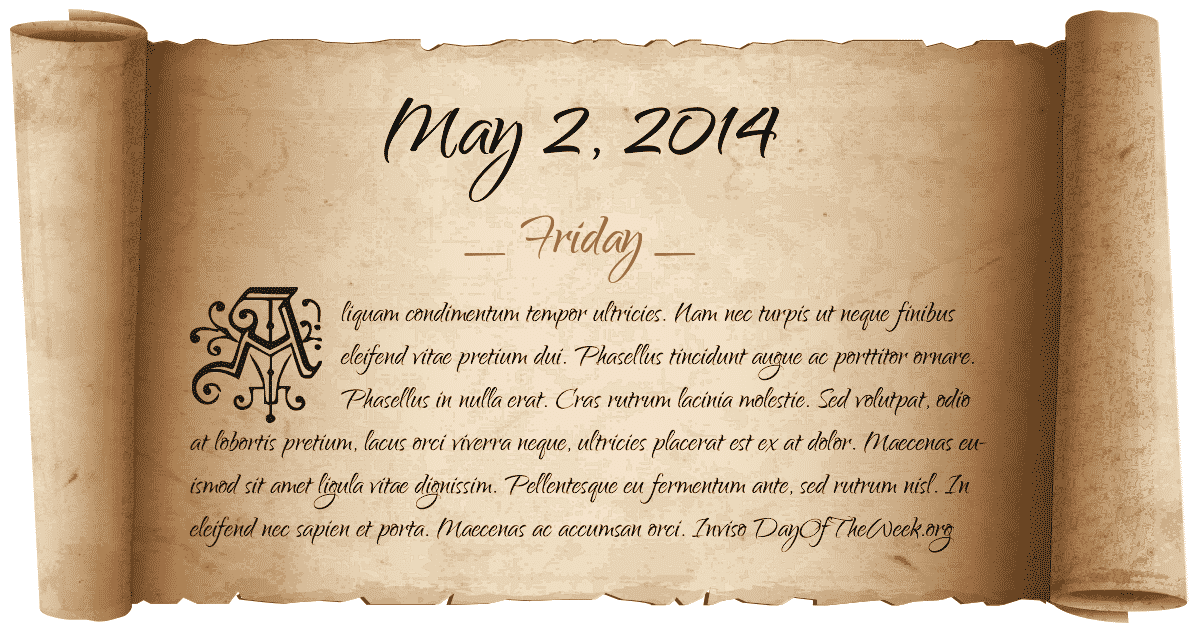 May 2, 2014
_ Friday _
Aliquam condimentum tempor ultricies. Nam nec turpis ut neque finibus
eleifend vitae pretium dui. Phasellus tincidunt augue ac porttitor ornare.
Phasellus in nulla erat. Cras rutrum lacinia molestie. Sed volutpat, odio
at lobortis pretium, lacus orci viverra neque, ultricies placerat est ex at dolor. Maecenas eu-
ismod sit amet ligula vitae dignissim. Pellentesque eu fermentum ante, sed rutrum nisl. In
eleifend nec sapien et porta. Maecenas ac accumsan orci. Inviso DayOfTheWeek.org